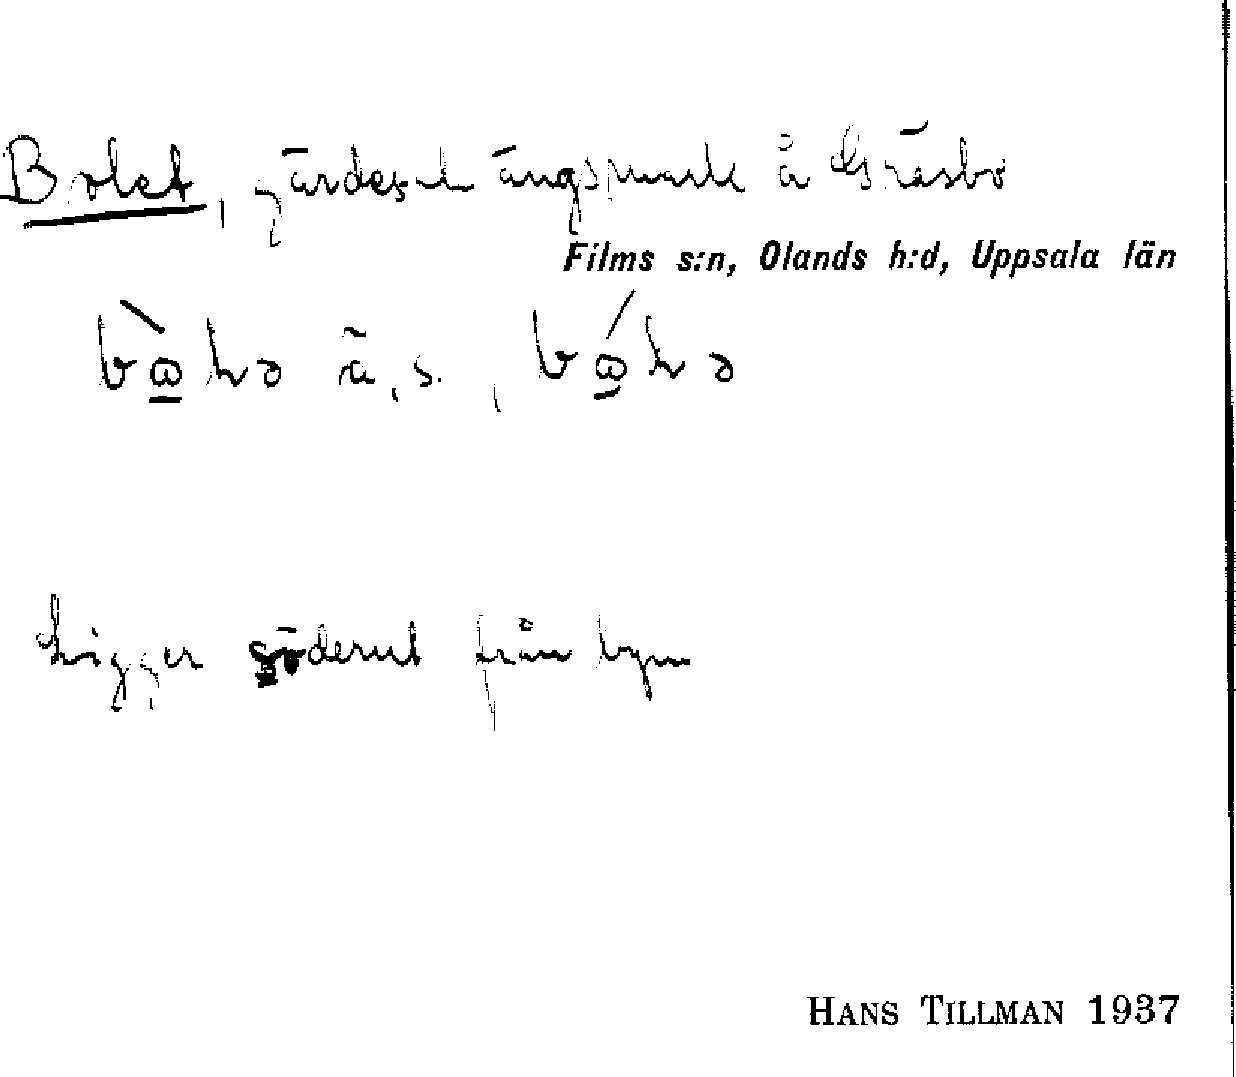 Bolet, gärdes- o. ängsmark å Gräsbo
Films s:n, Olands h:d, Uppsala län
ä. s.,
Ligger söderut från byn
HANS TILLMAN 1937